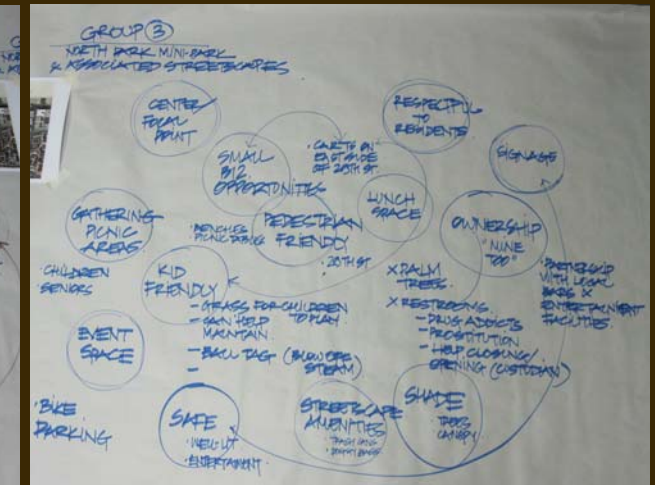 GROUP 3
NORTH PARK MINI-PARK
& ASSOCIATED STREETSCAPES
CENTER/
FOCAL
POINT
RESPECTFUL
TO
RESIDENTS
SIGNAGE
SMALL
BIZ
OPPORTUNITIES
· CARTS ON
EAST SIDE
OF 29TH ST.
LUNCH
SPACE
GATHERING
PICNIC
AREAS
· CHILDREN
SENIORS
· BENCHES
PICNIC TABLES
PEDESTRIAN
FRIENDLY
· 29TH ST.
OWNERSHIP
"MINE
TOO"
· PARTNERSHIP
WITH LOCAL
BARS &
ENTERTAINMENT
FACILITIES
KID
FRIENDLY
- GRASS FOR CHILDREN
TO PLAY
- CAN HELP
MAINTAIN
- BALL TAG (BLOW OFF
STEAM)
-
X PALM
TREES
X RESTROOMS
- DRUG ADDICTS
- PROSTITUTION
- HELP CLOSING/
OPENING (CUSTODIAN)
EVENT
SPACE
· BIKE
PARKING
SAFE
· WELL-LIT
· ENTERTAINMENT
STREETSCAPE
AMENITIES
· TRASH CANS
SHADE
· TREES
CANOPY